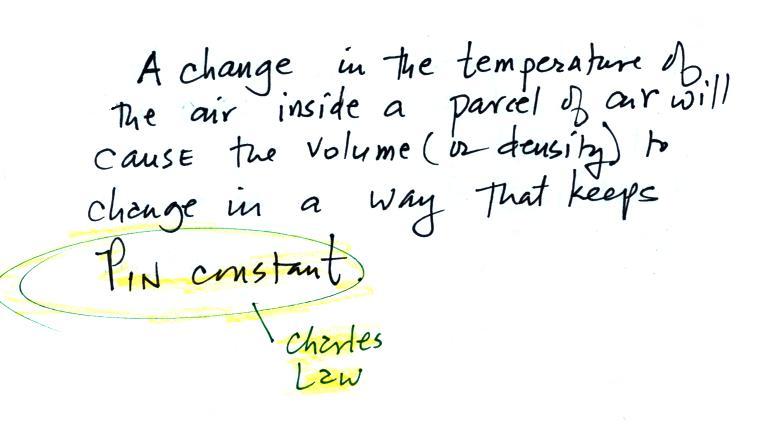 A change in the temperature of
the air inside a parcel of air will
CAUSE the volume (or density) to
change in a way that keeps
PIN constant.
Charles
Law